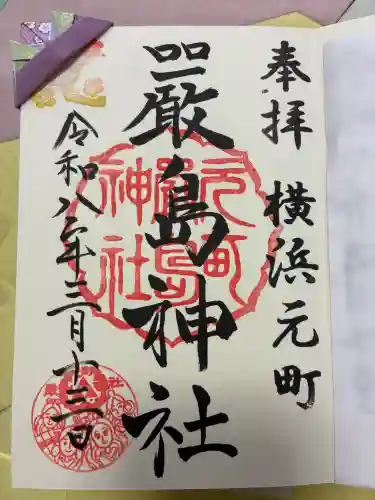 奉拝 横浜元町
嚴島神社
元町
嚴島
神社
令和八年三月十三日